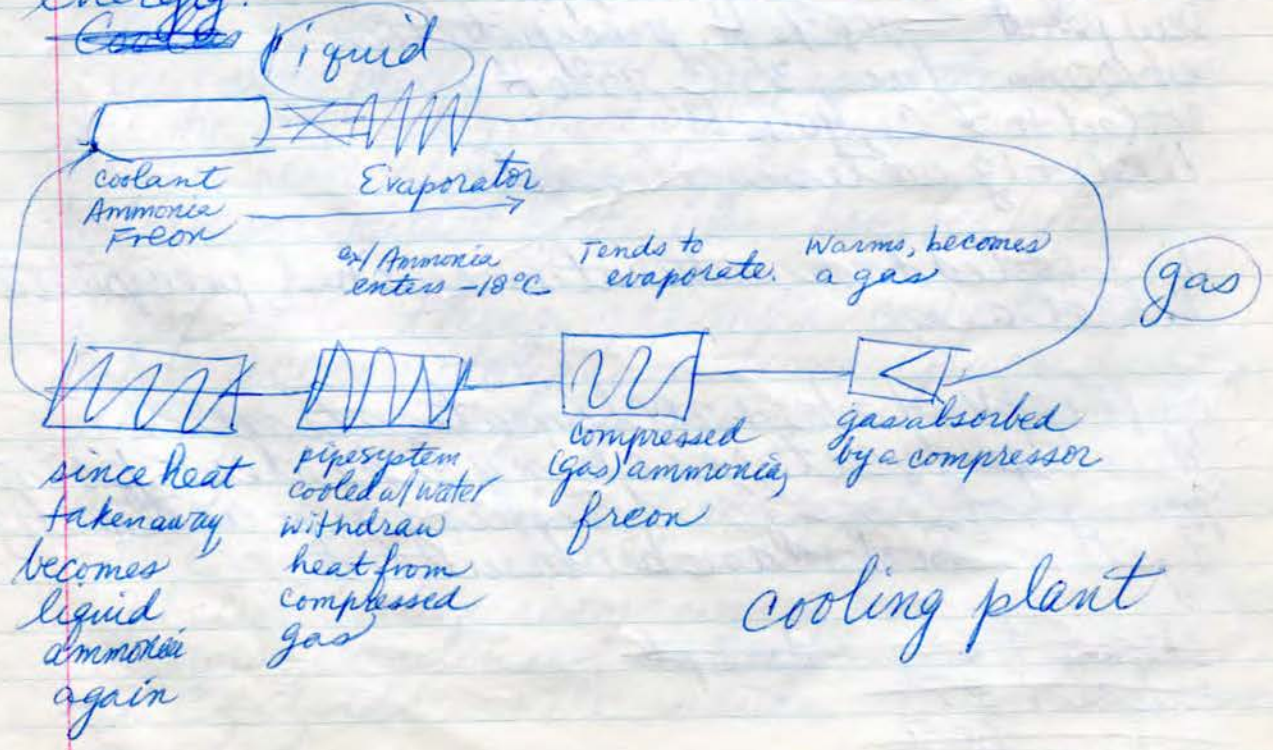 energy.
Coolas
liquid
coolant
Ammonia
Freon
Evaporator
ex/ Ammonia
enters -18°C
Tends to
evaporate.
Warms, becomes
a gas
gas
since heat
taken away
becomes
liquid
ammonia
again
pipesystem
cooled w/ water
withdraw
heat from
compressed
gas
compressed
(gas) ammonia,
freon
gas absorbed
by a compressor
cooling plant